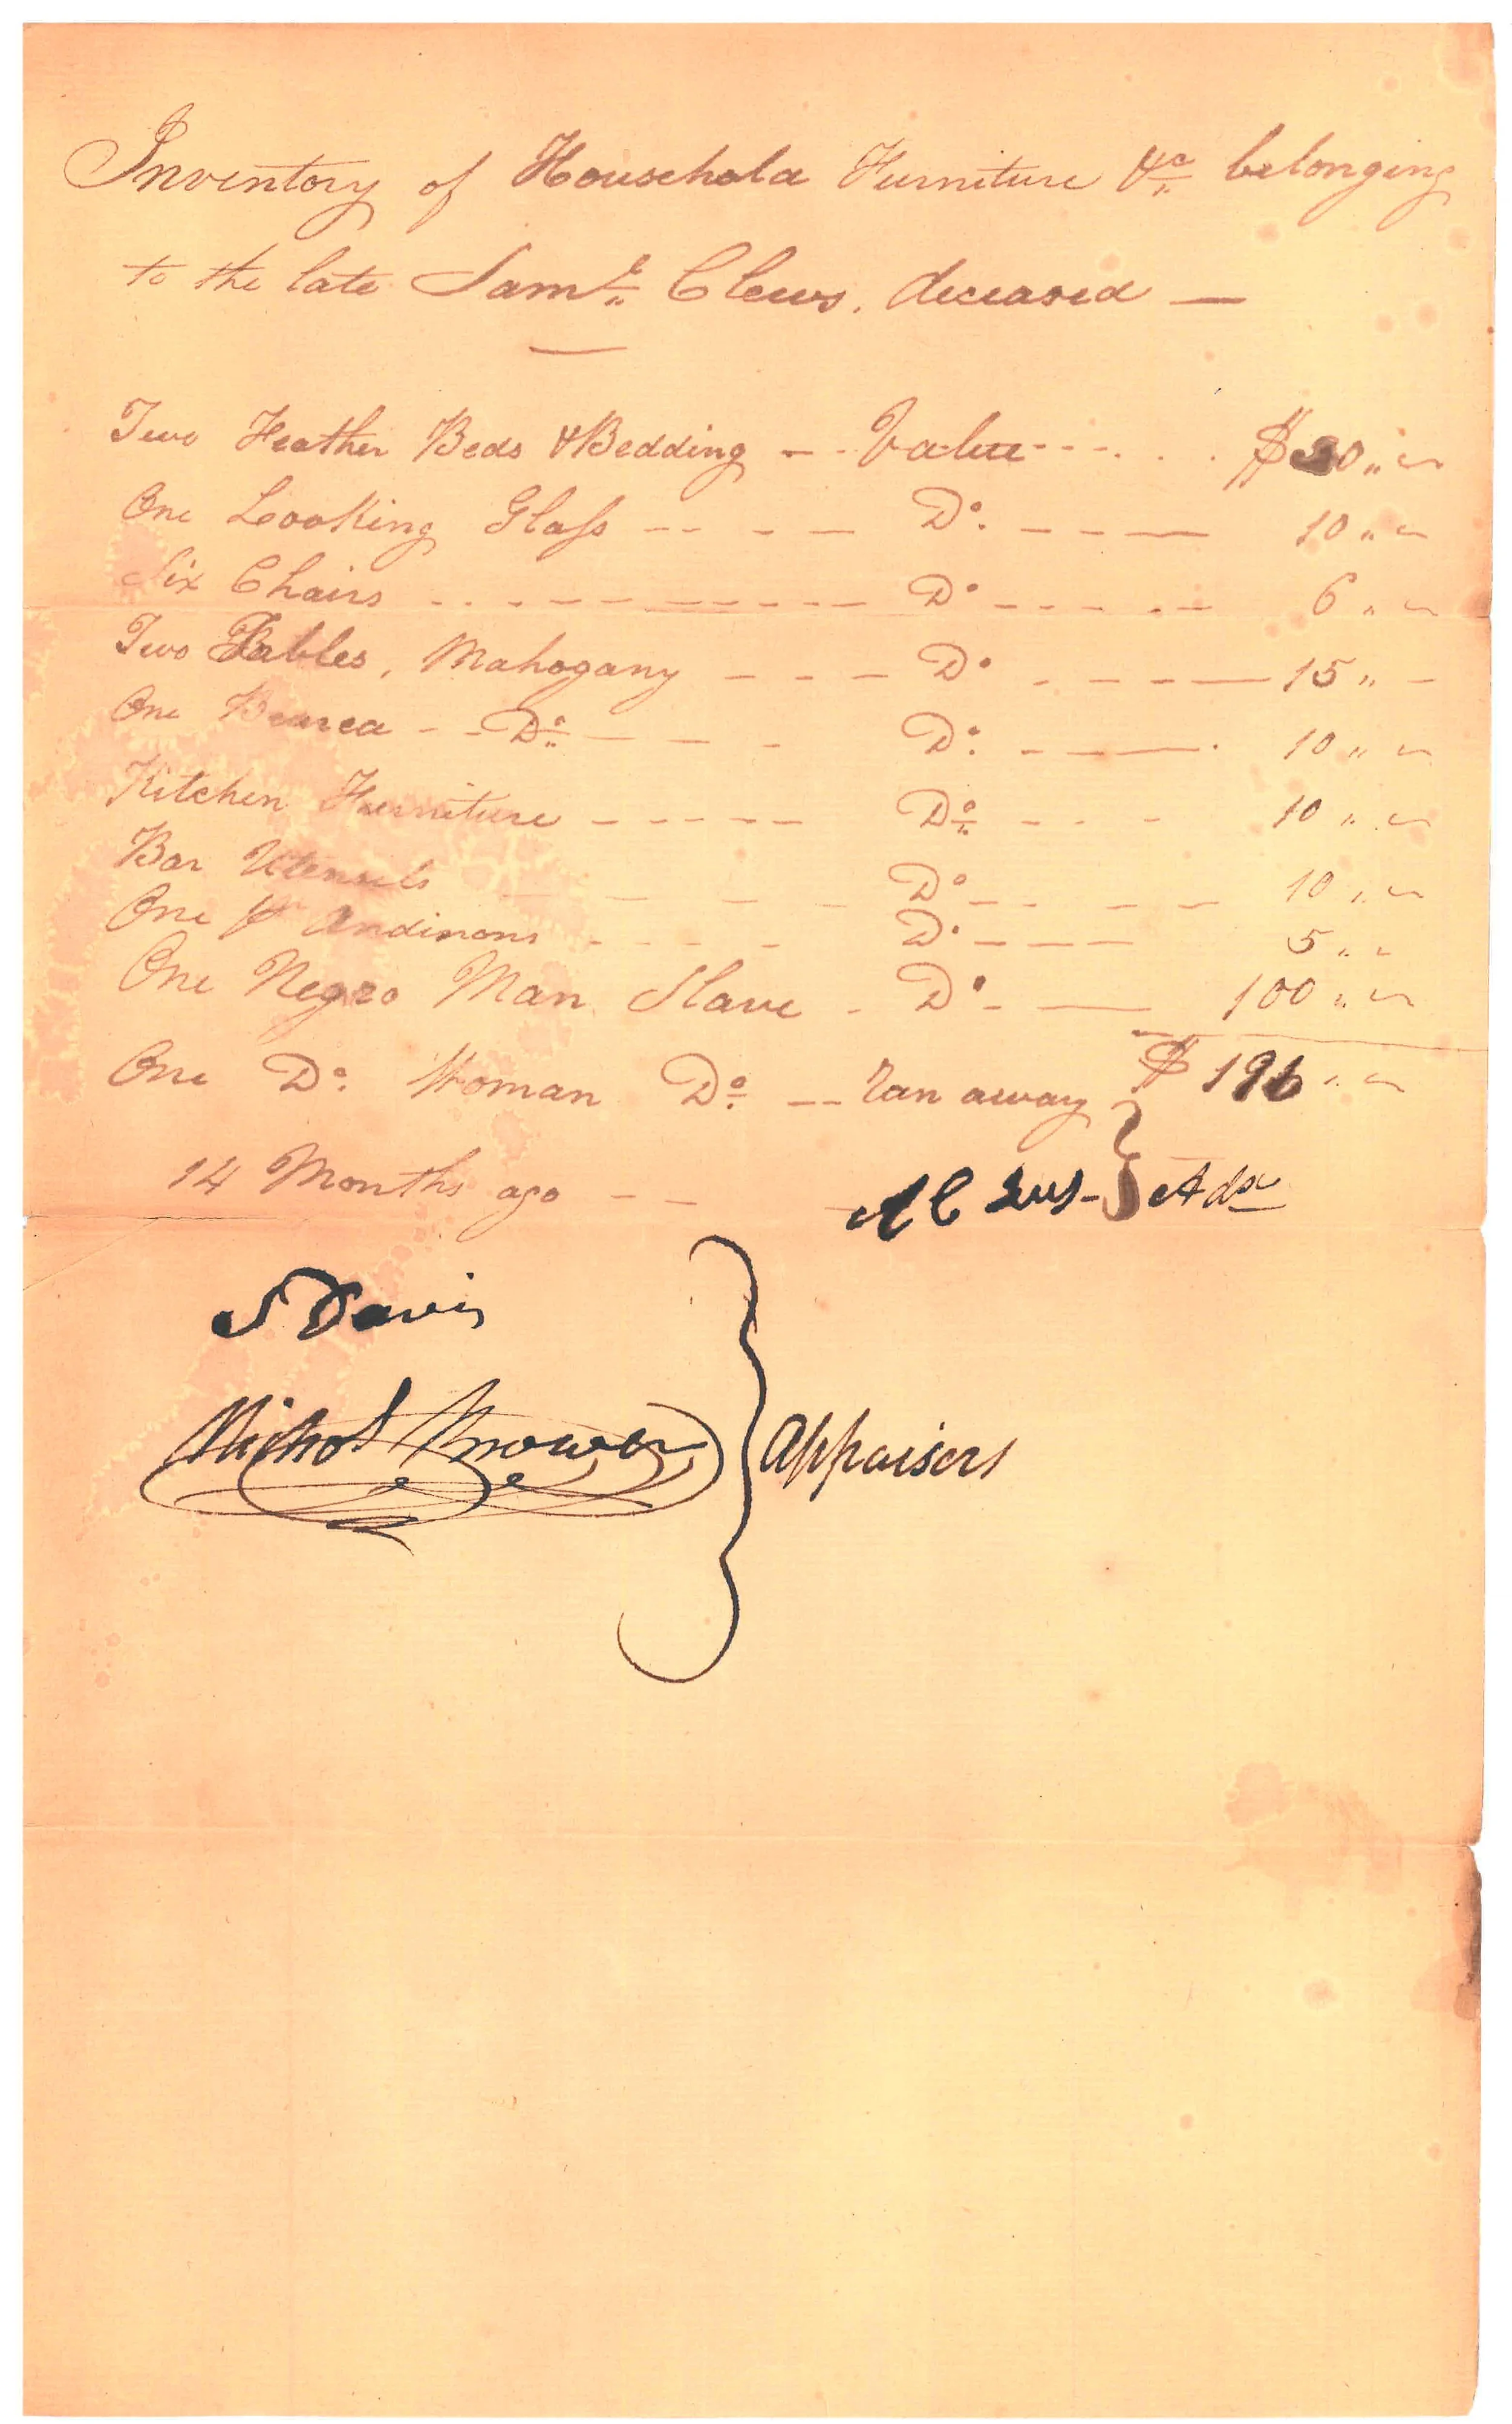 Inventory of Household Furniture &c belonging
to the late Saml Clews. deceased —
Two Feather Beds & Bedding -- Value ---- $30 " "
One Looking Glass -- - - — Do. - - - — 10 " "
Six Chairs - - - - - - - - Do - - - - - 6 " "
Two Tables, Mahogany - - - Do - - - — 15 " -
One Beurea - - Do - - - Do. - - — 10 " "
Kitchen Furniture - - - - - Do - - - 10 " "
Bar Utensils - - - - Do - - - - - 10 " "
One pr Andirons - - - - Do - - - 5 " "
One Negro Man Slave - Do - — 100 " "
One Do. Woman Do. -- ran away $ 196 " "
14 Months ago - -
Adx
S Davis
Appraisers